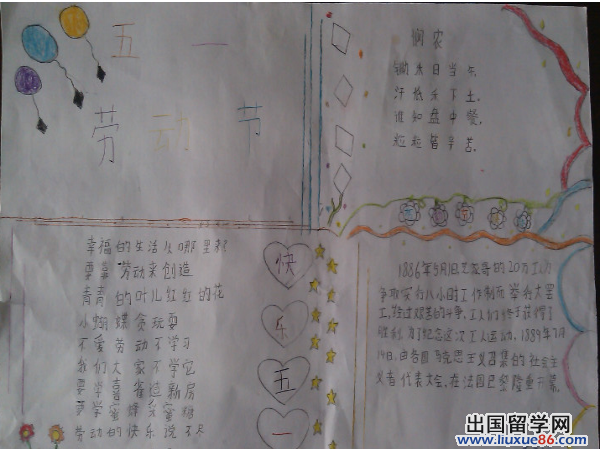 五 一
劳 动 节
悯农
锄禾日当午,
汗滴禾下土。
谁知盘中餐,
粒粒皆辛苦。
幸福的生活从哪里来
要靠劳动来创造
青青的叶儿红红的花
小蝴蝶贪玩耍
不爱劳动不学习
我们大家不学它
要学喜雀造新房
要学蜜蜂采蜜糖
劳动的快乐说不尽
快
乐
五
一
1886年5月1日芝加哥的20万工人
争取实行八小时工作制而举行大罢
工,经过艰苦的斗争,工人们终于获得了
胜利,为了纪念这次工人运动,1889年7月
14日,由各国马克思主义者召集的社会主
义者代表大会,在法国巴黎隆重开幕。
出国留学网
www.liuxue86.com